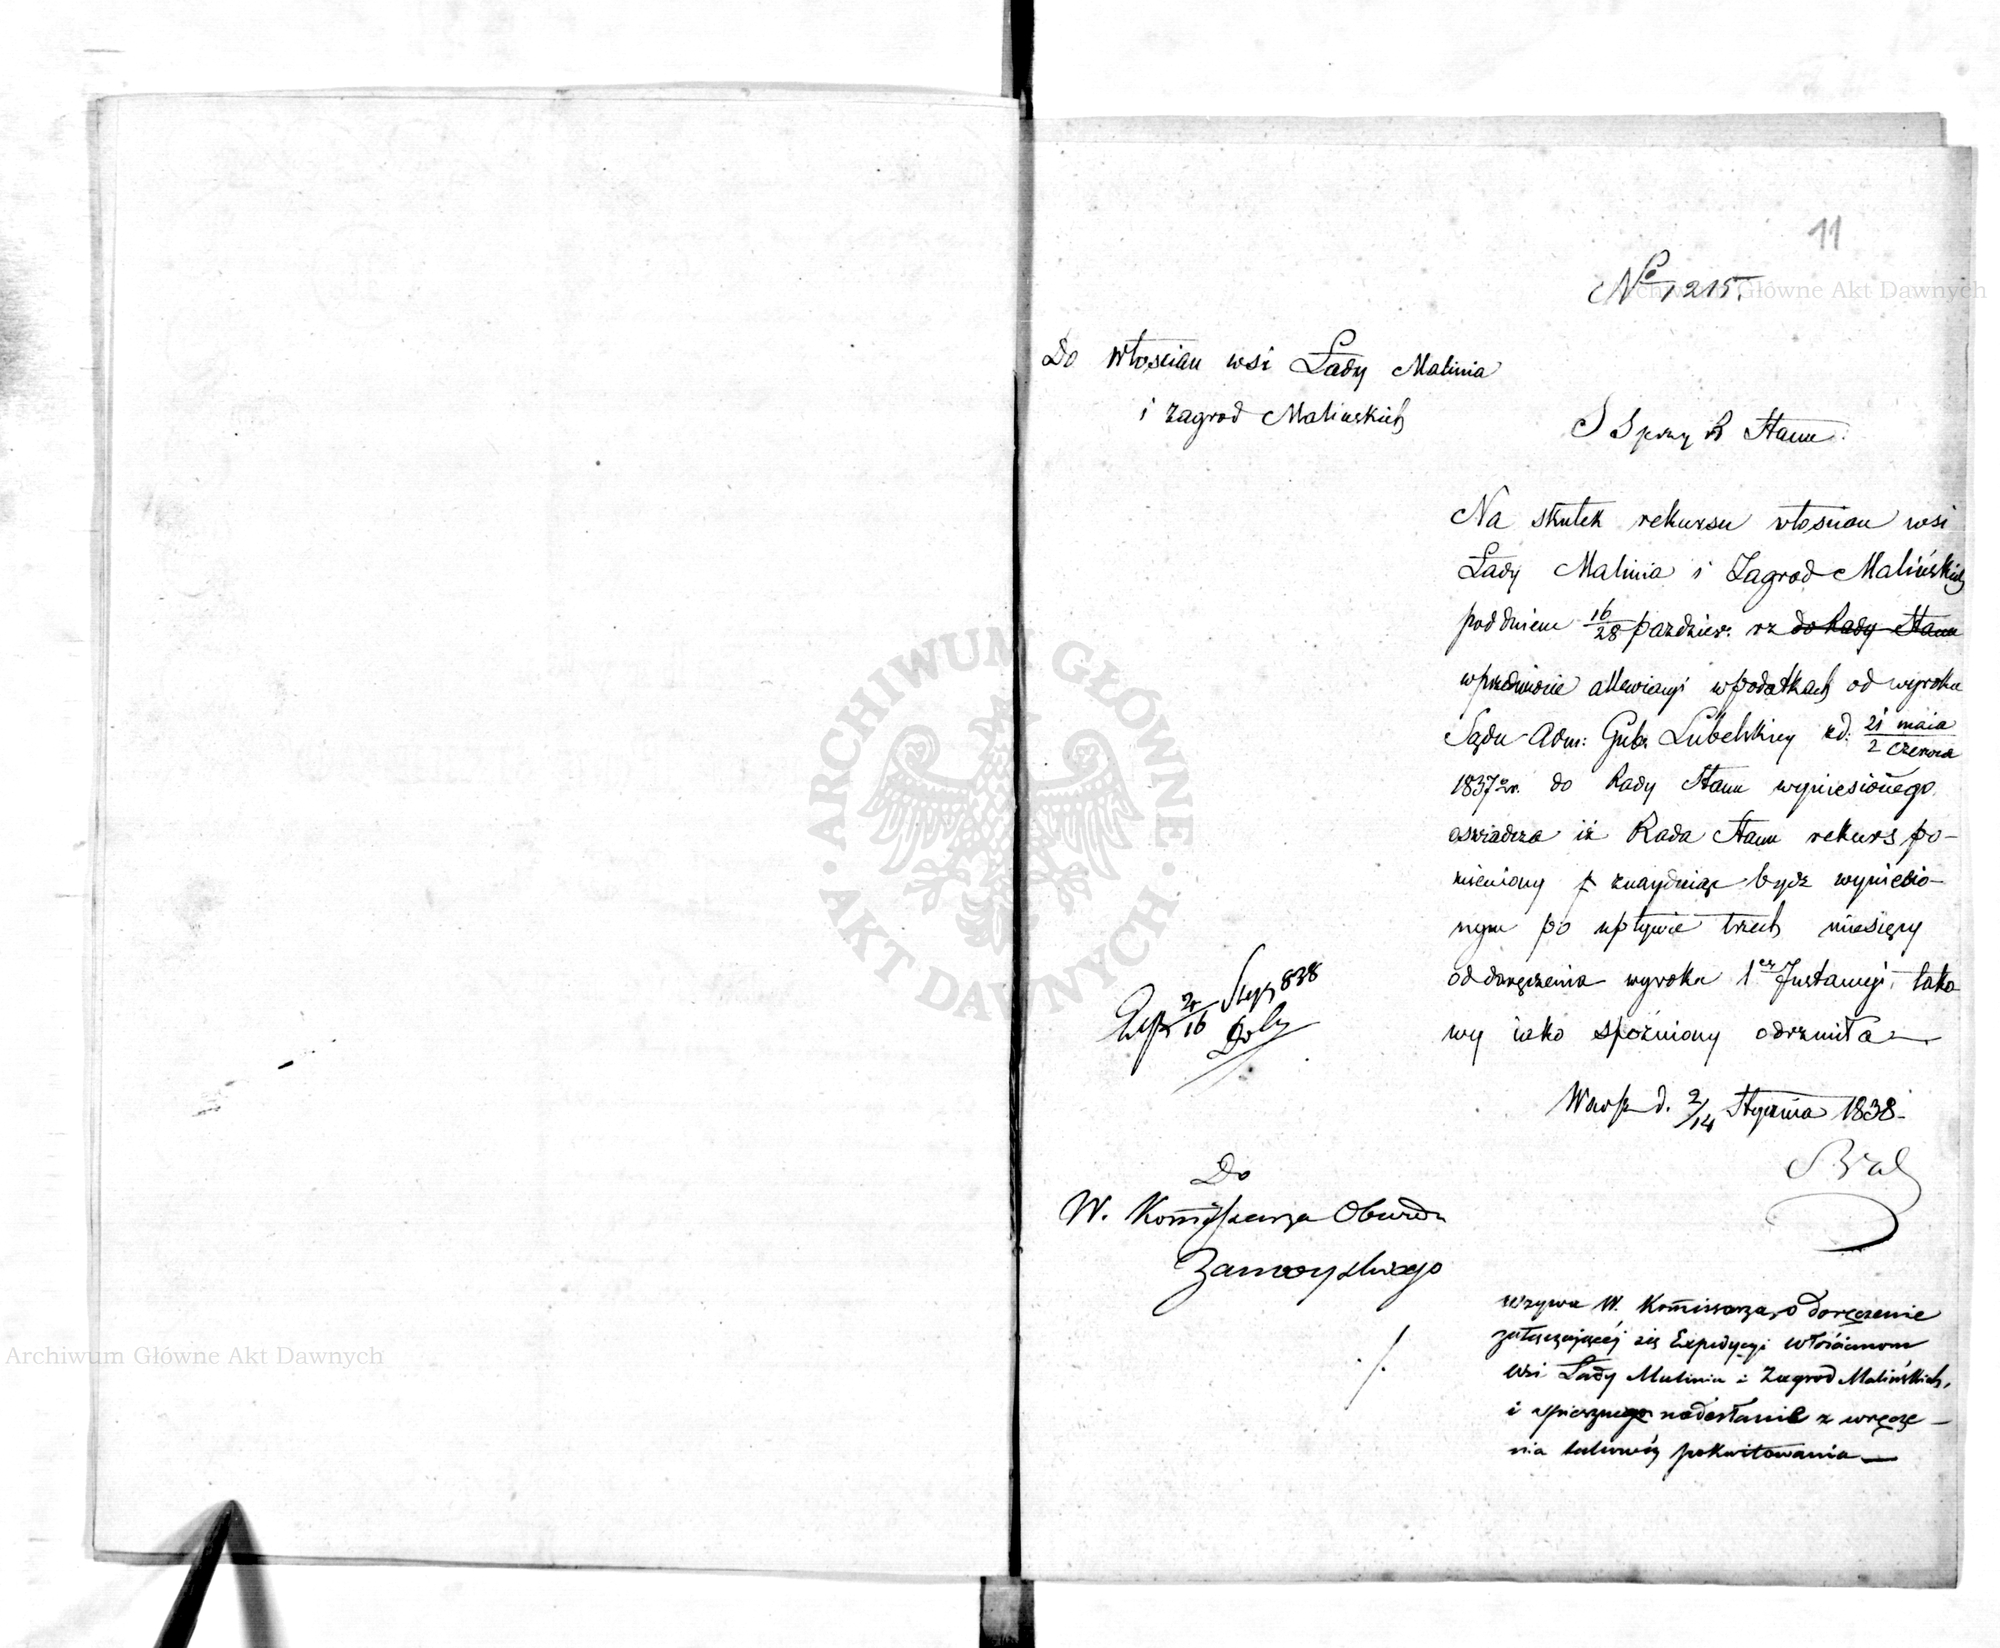 11
No 1215.
Do Włościan wsi Łady Malinia
i Zagrod Malińskich
S Sprzy R Stanu
Na skutek rekursu włoscian wsi
Łady Malinia i Zagrod Malińskich
pod dniem 16/28 pazdzier. rz do Rady Stanu
w przedmiocie allewiacyi w podatkach od wyroku
Sądu Adm: Gub. Lubelskiey zd. 21 maia/2 czerwca
1837 r. do Rady Stanu wyniesionego
oswiadcza iż Rada Stanu rekurs po-
mieniony znayduiąc bydz wyniesio-
nym po upływie trzech miesięcy
od doręczenia wyroku 1ey Instancyi, tako
wy iako spoźniony odrzuciła
Warsz d. 2/14 Stycznia 1838
Exp 2/16 Stycz 838
Do
W. Kommissarza Obwodu
Zamoyskiego
wzywa W. Kommissarza, o doręczenie
załączającéj się Expedycyi włościanom
wsi Łady Malinia i Zagrod Malińskich,
i spieszne nadesłanie z wręcze-
nia pokwitowania
ARCHIWUM GŁÓWNE
AKT DAWNYCH
Archiwum Główne Akt Dawnych
Archiwum Główne Akt Dawnych